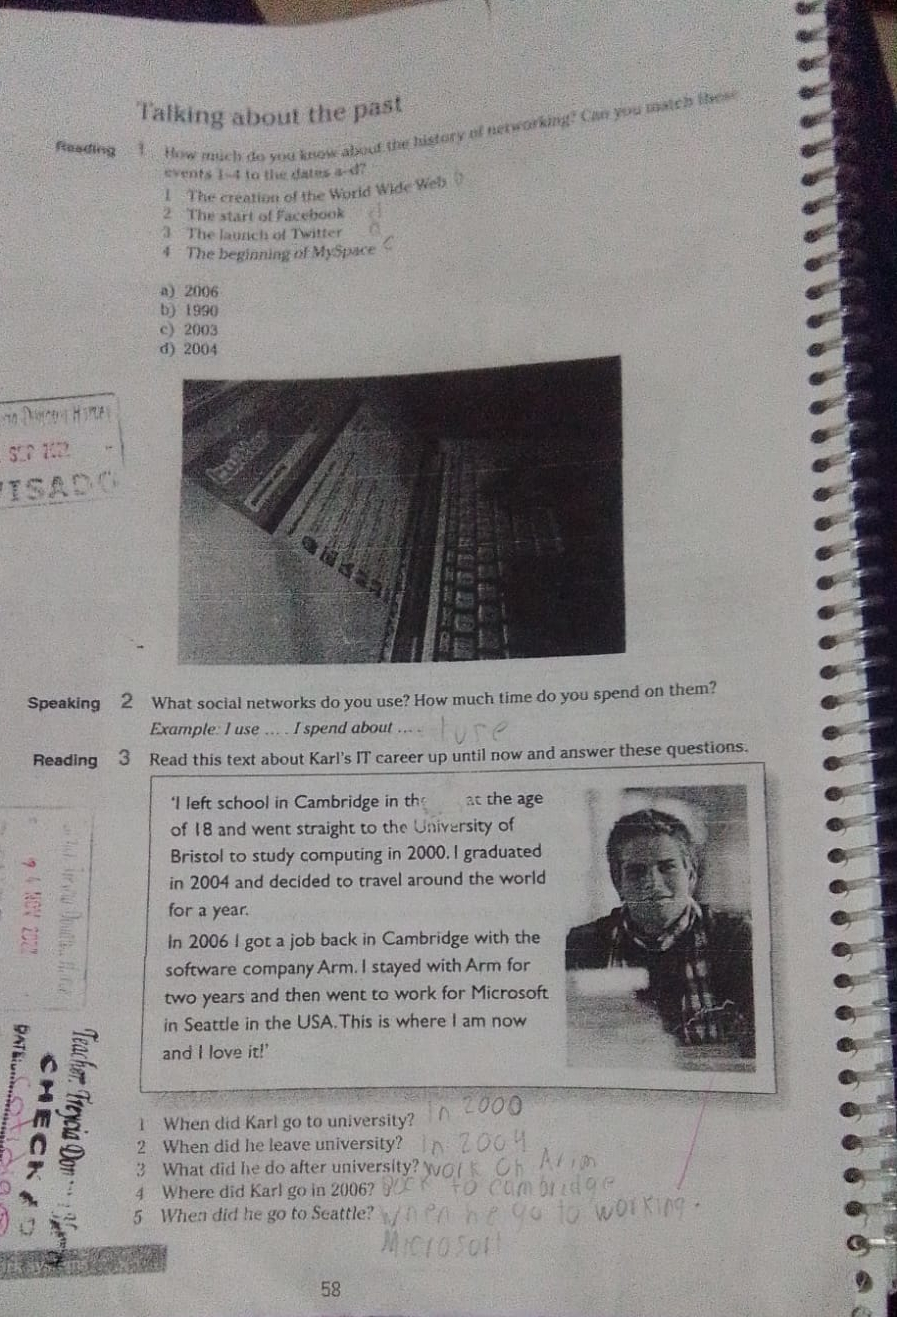 Talking about the past
Reading 1 How much do you know about the history of networking? Can you match these
events 1-4 to the dates a-d?
1 The creation of the World Wide Web b
2 The start of Facebook d
3 The launch of Twitter a
4 The beginning of MySpace c
a) 2006
b) 1990
c) 2003
d) 2004
SEP
VISADO
Speaking 2 What social networks do you use? How much time do you spend on them?
Example: I use .... I spend about ....
Reading 3 Read this text about Karl's IT career up until now and answer these questions.
'I left school in Cambridge in the at the age
of 18 and went straight to the University of
Bristol to study computing in 2000. I graduated
in 2004 and decided to travel around the world
for a year.
In 2006 I got a job back in Cambridge with the
software company Arm. I stayed with Arm for
two years and then went to work for Microsoft
in Seattle in the USA. This is where I am now
and I love it!'
NOV
Teacher:
CHECKED
DATE:
1 When did Karl go to university? In 2000
2 When did he leave university? In 2004
3 What did he do after university? work on Arim
4 Where did Karl go in 2006? Back to cambridge
5 When did he go to Seattle? when he go to working.
Microsoft
58